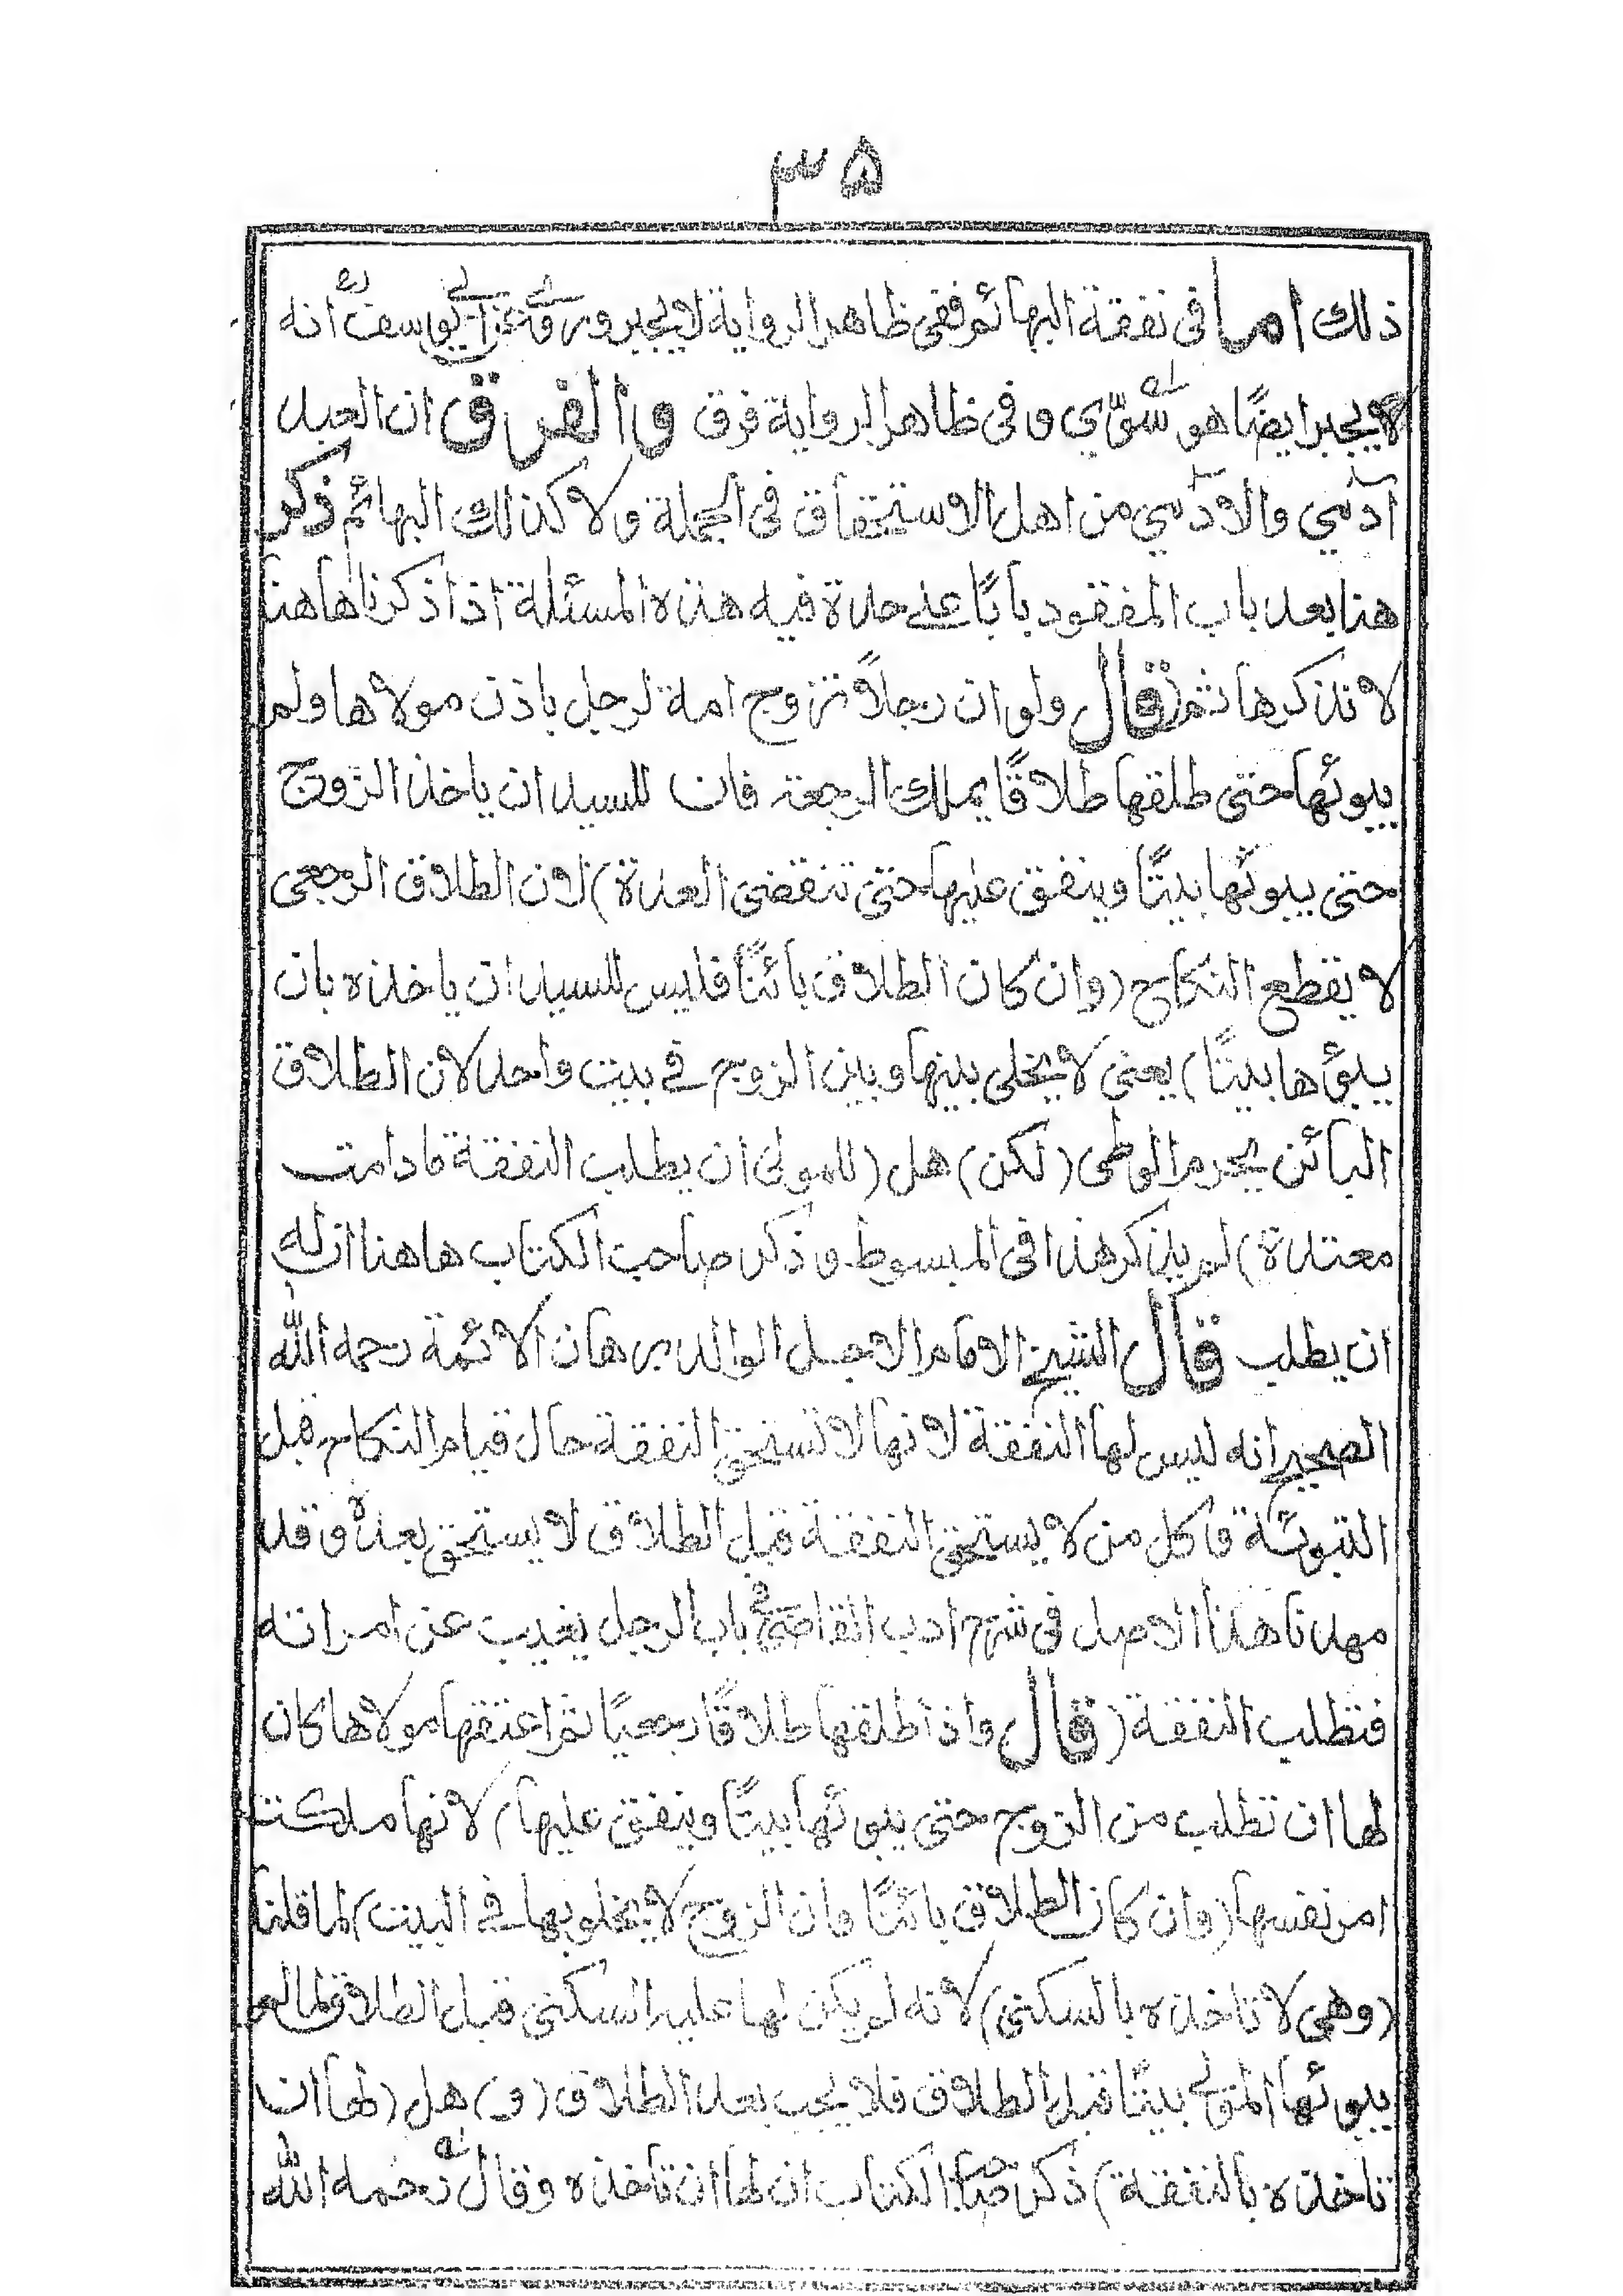 ٣٥
ذلك اما فى نفقة البهائم ففى ظاهر الرواية لا يجبر وروى عن ابى يوسف رح انه
لا يجبر ايضًا هو سوّى وفى ظاهر الرواية فرق والفرق ان العبد
آدمي والآدمي من اهل الاستحقاق فى الجملة ولا كذلك البهائم ذكر
هنا بعد باب المفقود بابًا على حدة فيه هذه المسئلة اذا ذكرناها هنا
لا نذكرها ثم (قال ولو ان رجلاً تزوج امة لرجل باذن مولاها ولم
يبوئها حتى طلقها طلاقًا يملك الرجعة فان للسيد ان ياخذ الزوج
حتى يبوئها بيتًا وينفق عليها حتى تنقضى العدة) لان الطلاق الرجعى
لا يقطع النكاح (وان كان الطلاق بائنًا فليس للسيد ان ياخذه بان
يبوّءها بيتًا) يعنى لا يخلى بينها وبين الزوج فى بيت واحد لان الطلاق
البائن يحرم الوطى (لكن) هل (للمولى ان يطلب النفقة ما دامت
معتدة) لم يذكر هذا فى المبسوط وذكر صاحب الكتاب هاهنا ان له
ان يطلب قال الشيخ الامام الاجل الوالد برهان الائمة رحمه الله
الصحيح انه ليس لها النفقة لانها لا تستحق النفقة حال قيام النكاح قبل
التبوئة فاكل من لا يستحق النفقة قبل الطلاق لا يستحق بعده وقد
مهدنا هذا الاصل فى شرح ادب القاضى فى باب الرجل يغيب عن امراته
فتطلب النفقة (قال واذا طلقها طلاقًا رجعيًا ثم اعتقها مولاها كان
لها ان تطلب من الزوج حتى يبوئها بيتًا وينفق عليها) لانها ملكت
امر نفسها (وان كان الطلاق بائنًا فان الزوج لا يخلو بها فى البيت) لما قلنا
(وهى لا تاخذه بالسكنى) لانه لم يكن لها عليه السكنى قبل الطلاق لما لم
يبوئها المولى بيتًا قبل الطلاق فلا يجب بعد الطلاق (و) هل (لها ان
تاخذه بالنفقة) ذكر صاحب الكتاب ان لها ان تاخذه وقال رحمه الله